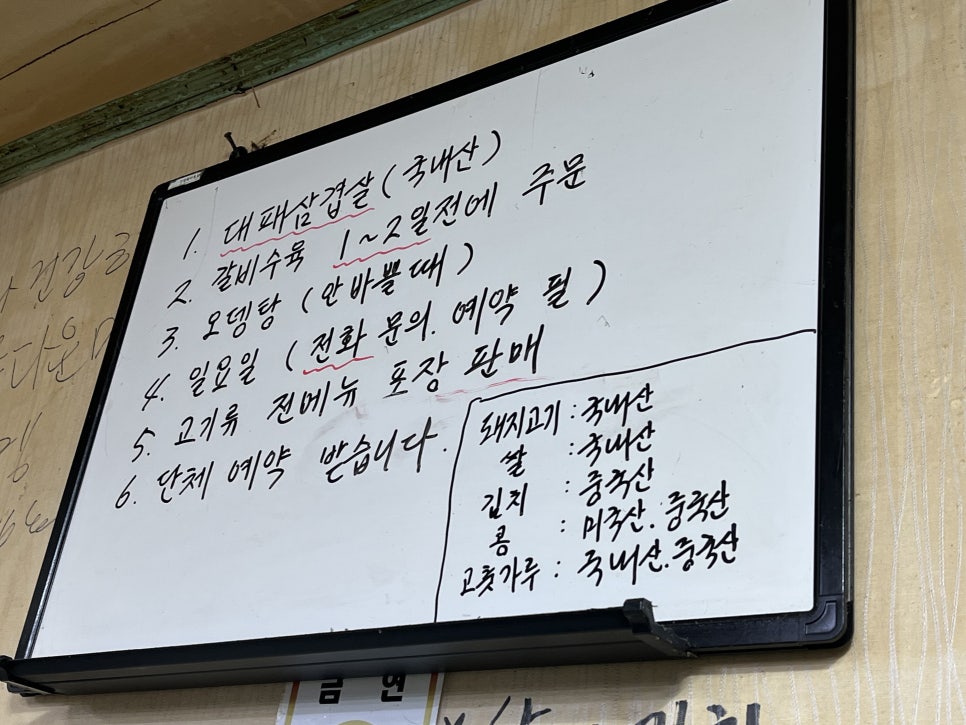 1. 대패삼겹살 (국내산)
2. 갈비수육 1~2일전에 주문
3. 오뎅탕 (안바쁠때)
4. 일요일 (전화 문의. 예약 필)
5. 고기류 전메뉴 포장 판매
6. 단체 예약 받습니다.
돼지고기 : 국내산
쌀 : 국내산
김치 : 중국산
콩 : 미국산. 중국산
고춧가루 : 국내산.중국산
금연